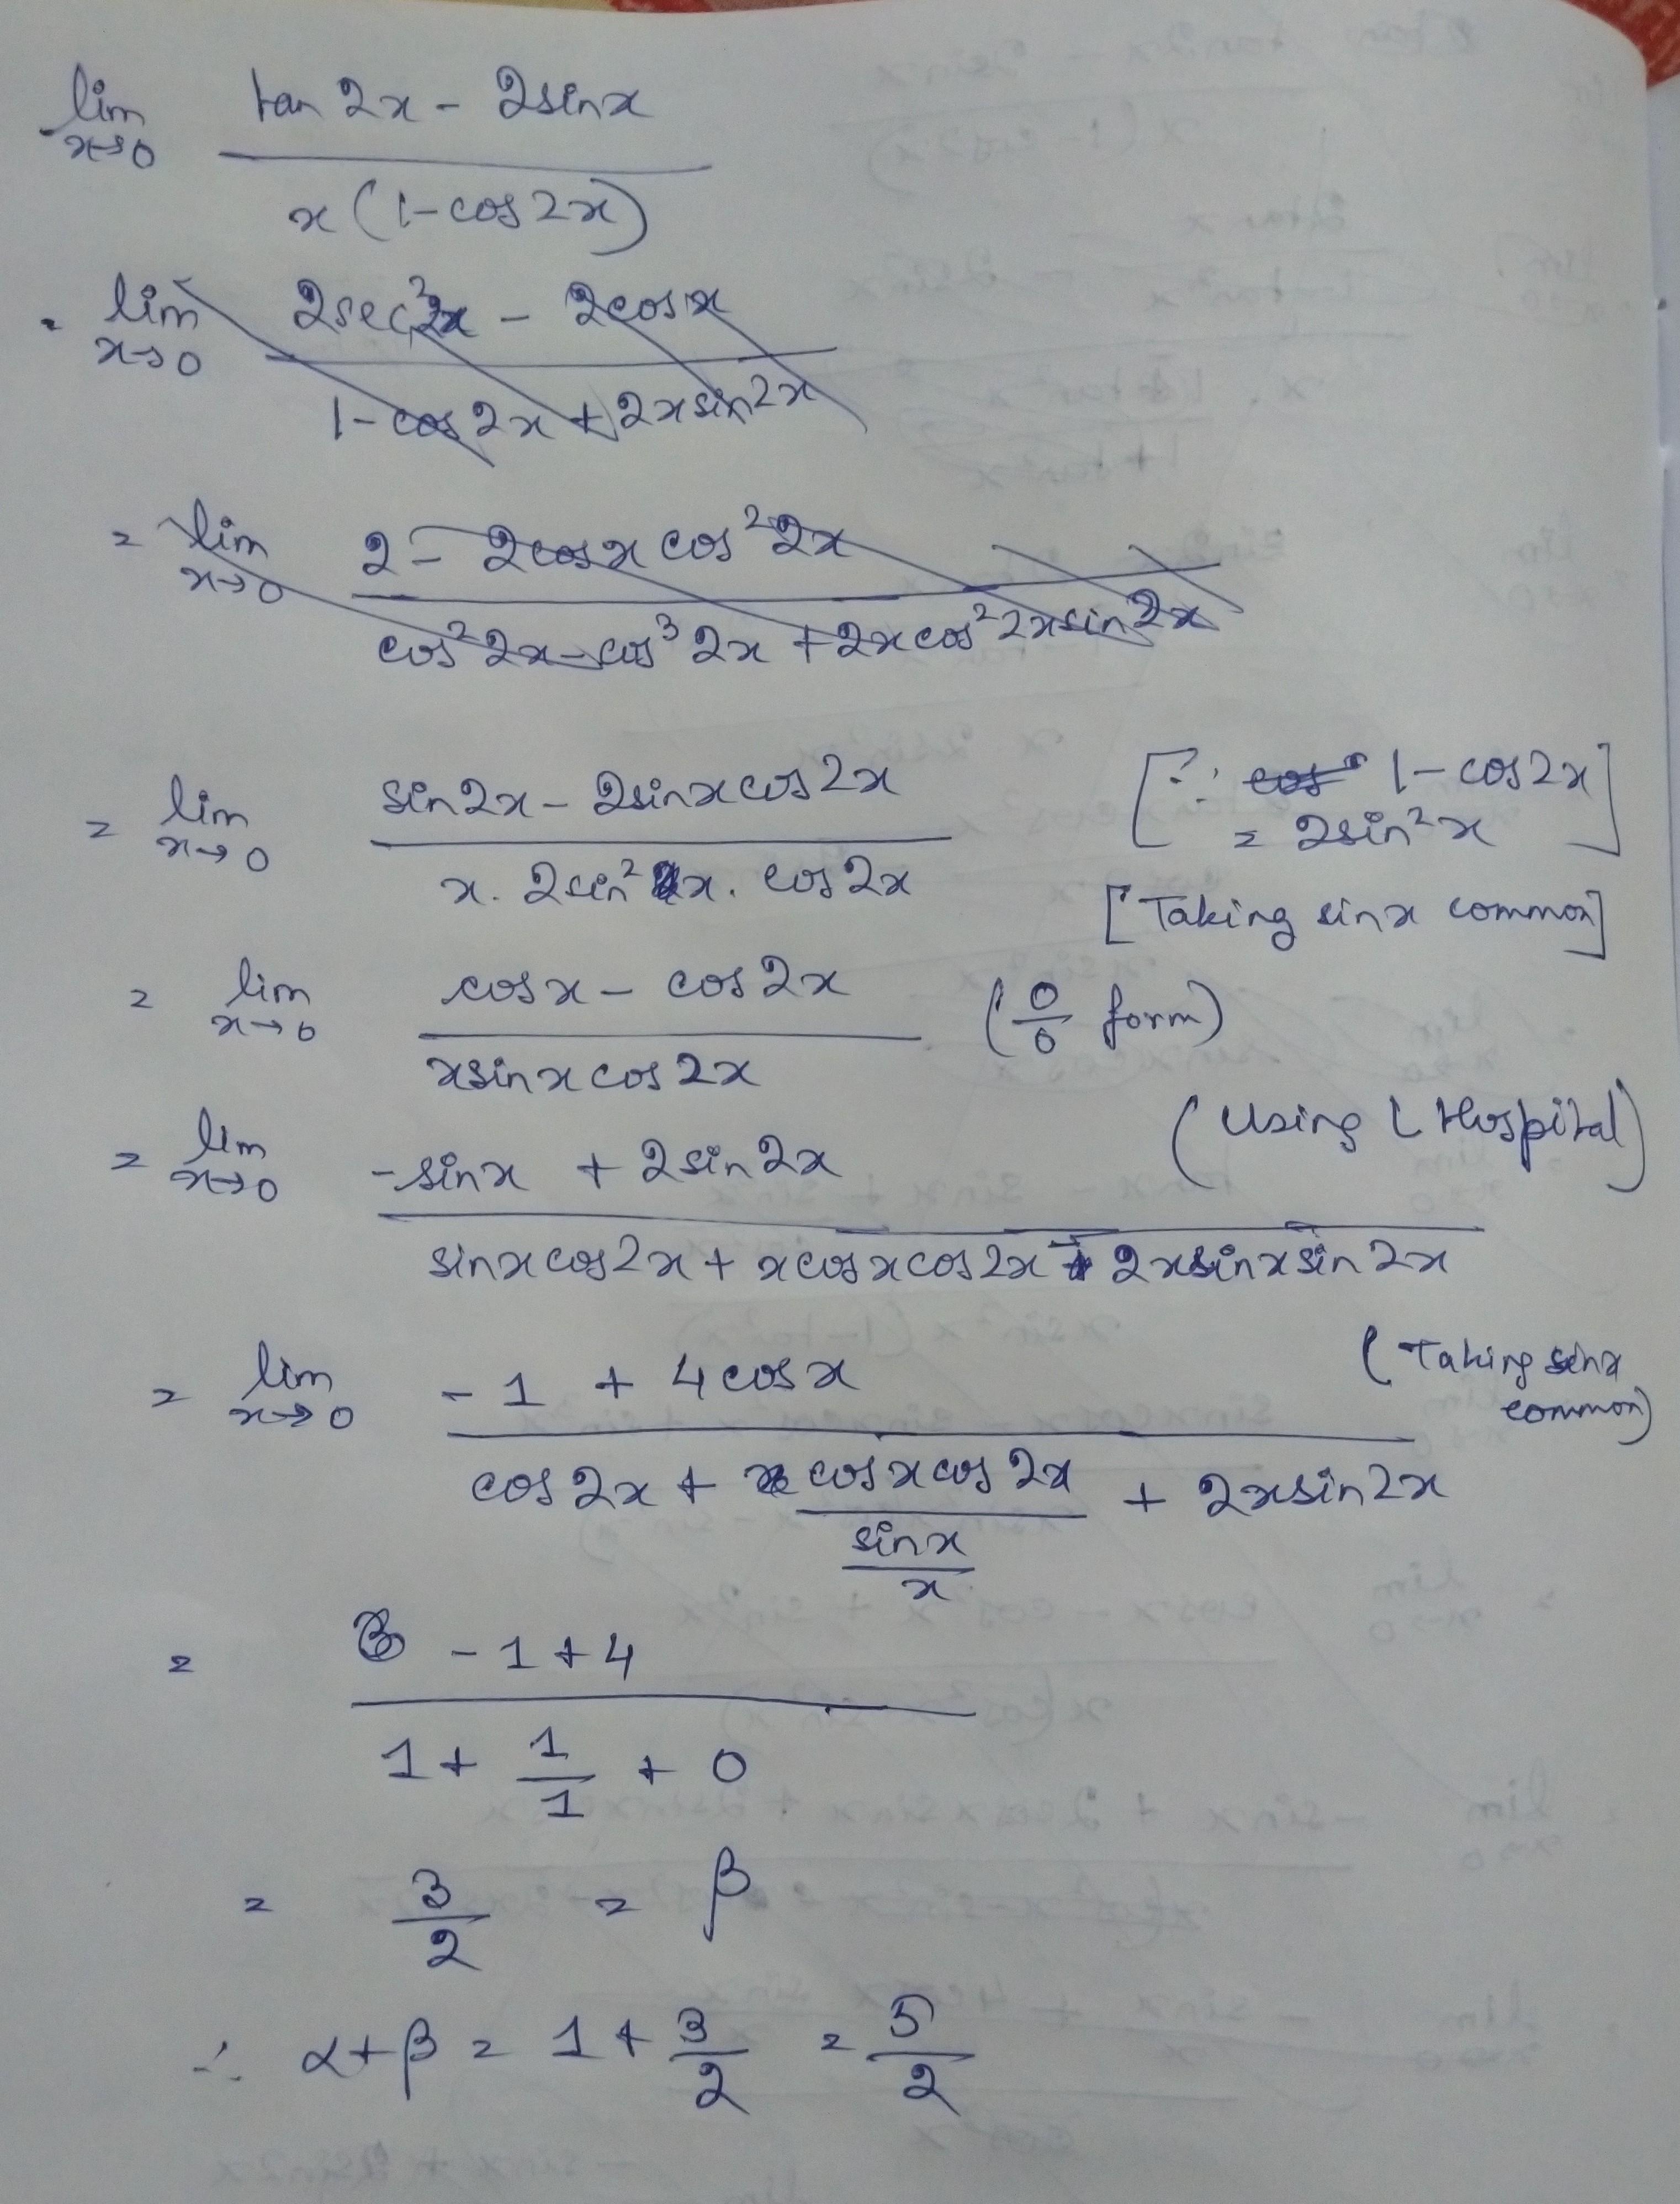 lim x→0 (tan 2x - 2sinx) / (x(1-cos2x))
= lim x→0 (2sec²2x - 2cosx) / (1-cos2x + 2xsin2x)
= lim x→0 (2 - 2cosx cos²2x) / (cos²2x - cos³2x + 2xcos²2xsin2x)
= lim x→0 (sin2x - 2sinxcos2x) / (x. 2sin²x. cos2x) [∵ 1-cos2x = 2sin²x]
[Taking sinx common]
= lim x→0 (cosx - cos2x) / (xsinxcos2x) (0/0 form)
(Using L Hospital)
= lim x→0 (-sinx + 2sin2x) / (sinxcos2x + xcosxcos2x - 2xsinxsin2x)
(Taking sinx common)
= lim x→0 (-1 + 4cosx) / (cos2x + (cosxcos2x)/(sinx/x) + 2xsin2x)
= (-1+4) / (1 + 1/1 + 0)
= 3/2 = β
∴ α+β = 1 + 3/2 = 5/2